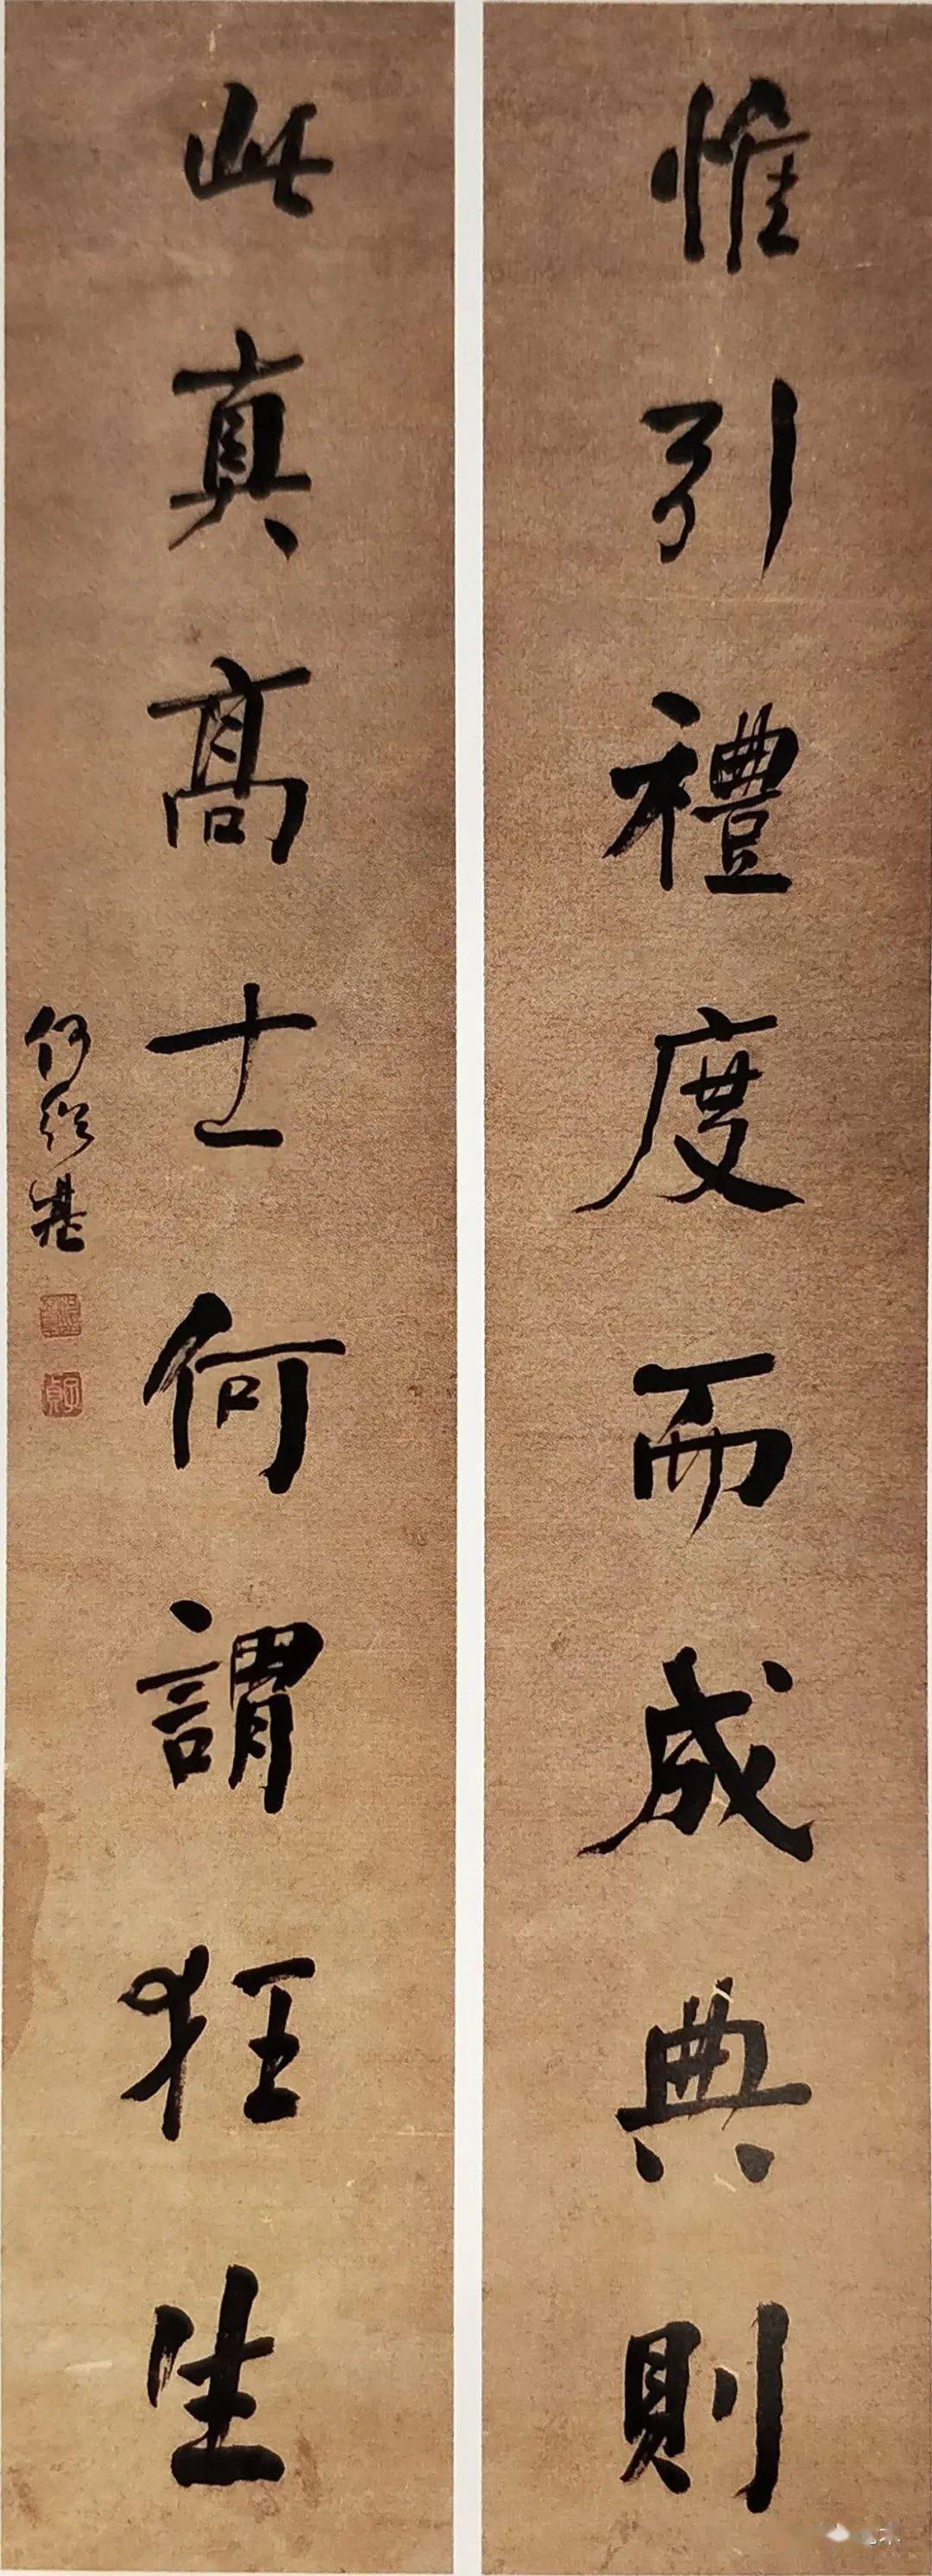 惟引禮度而成典則
此真高士何謂狂生
何紹基
子貞